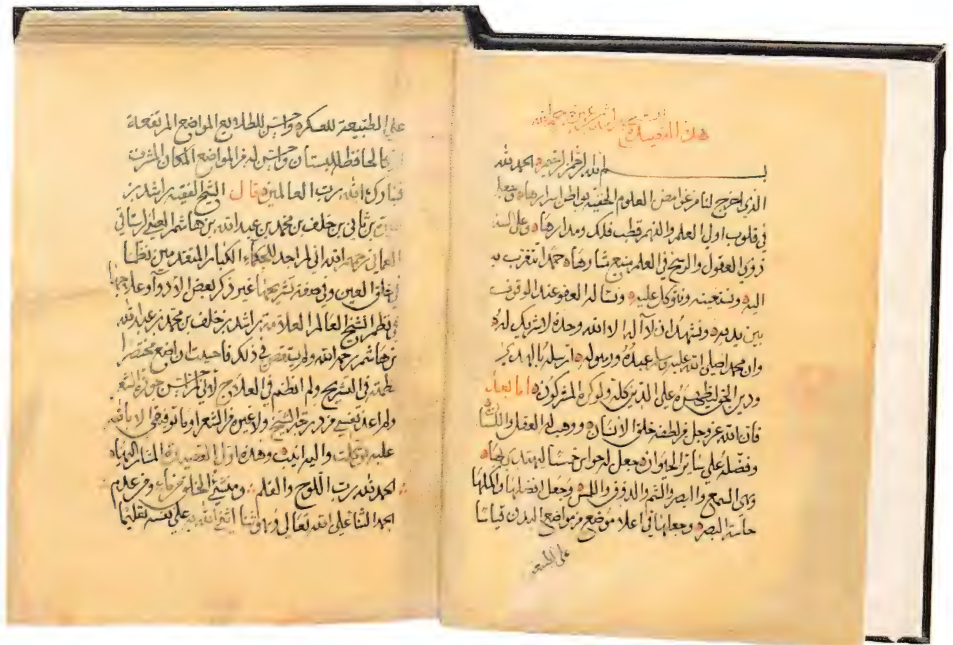 هذه القصيدة
بسم الله الرحمن الرحيم الحمد لله
الذي اخرج لنا من غوامض العلوم الخفية بواطن اسرارها وجعل
في قلوب اولي العلم والفهم قطب فلك ومدارها وعلى السنة
ذوي العقول والرسخ في العلم ينبع حمدا نتقرب به
اليه ونستعينه ونتوكل عليه ونسأله العفو عند الوقوف
بين يديه ونشهد ان لا آله الا الله وحده لا شريك له
وان محمدا صلى الله عليه وسلم عبده ورسوله ارسله بالهدى
ودين الحق ليظهره على الدين كله ولو كره المشركون اما بعد
فان الله عز وجل من لطفه خلق الانسان ووهب له العقل واللسان
وفضله على سائر الحيوان جعل له حواس خمسا ليهتدي بها
وهي السمع والبصر والشم والذوق واللمس وجعل افضلها واكملها
حاسة البصر وجعلها في اعلا موضع من مواضع البدن قياسا
على الطبيعة
على الطبيعة للعسكر وحواس للطلايع المواضع المرتفعة
كالحافظ للبستان من المواضع المكان المشرف
فتبارك الله رب العالمين قال الشيخ الفقيه راشد بن
بن ثاني بن خلف بن محمد بن عبد الله بن هاشم الرستاقي
العماني رحمه الله اني لم اجد للحكماء الكبار المتقدمين نظما
في خلق العين وفي صفة تشريحها غير ذكر بعض الادوا وعلاجها
في نظم الشيخ العالم العلامة راشد بن خلف بن محمد بن عبد الله
بن هاشم رحمه الله ولم يتقص في ذلك فاحببت اواضع مختصرا
نظمته في التشريح ولم انظم في العلاج
ولم اعد نفسي من درجة الشيخ ولا غيره من الشعرا وما توفيقي الا بالله
عليه توكلت واليه انيب وهذه اول القصيدة
الحمد لله رب اللوح والقلم ومنشئ الخلق من ماء ومن عدم
الحمد الثنا على الله تعالى